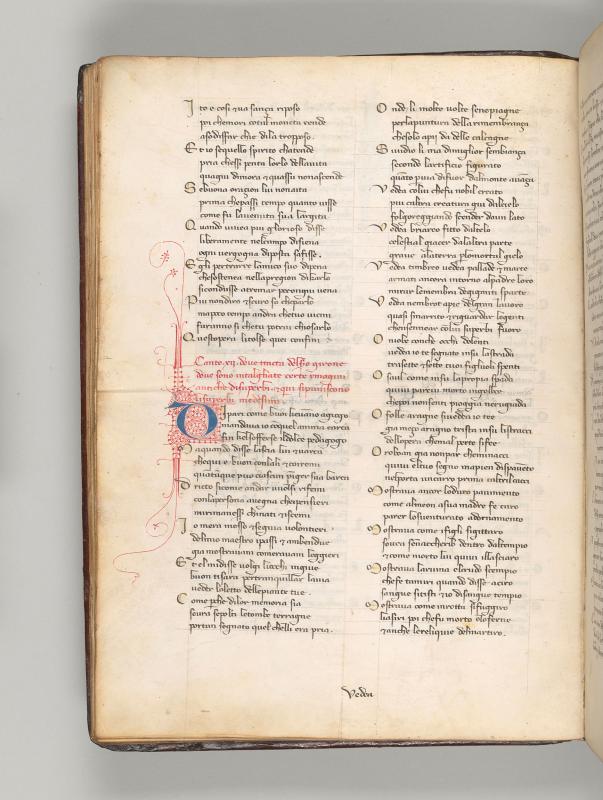 I to e cosi e va sanza riposo
poi che mori cotal moneta rende
a sodisfar che di la troppo oso.
Et io se quello spirito chatende
pria chessi penta lorlo della vita
quagiu dimora e quassu non ascende
Se buona orazion lui non aita
prima che passi tempo quanto visse
come fu la venuta sua largita
Quando vivea piu glorioso disse
liberamente nel campo di siena
ogni vergogna diposta saffisse.
Egli per trarre lamico suo di pena
che sostenea nella pregion di karlo
si condusse a tremar per ogni vena
Piu non diro e scuro so che parlo
ma poco tempo andra che tuoi vicini
faranno si che tu potrai chiosarlo
Questopera li tolse quei confini
Canto xii. dove tracta
dove sono intagliate certe ymagini
antiche di superbi
Di pari come buoi che vanno a giogo
mandava io con quel anima carca
fin chel sofferse il dolce pedagogo
Ma quando disse lascia lui e varca
che qui e buon con lali e coi remi
quantunque puo ciascun pinger sua barca
Dricto si come andar vuolsi rifemi
con la persona avegna che i pensieri
mi rimanessi chinati e scemi
Io mera mosso e seguia volontieri
del mio maestro i passi e ambendue
gia mostravam comeravam leggieri
Et el mi disse volgi li occhi ingiue
buon ti sara per tranquillar la via
veder lo letto delle piante tue.
Come perche di lor memoria sia
sovra sepolti le tombe terragne
portan segnato quel chelli era pria.
Onde li molte volte se ne piagne
per la puntura della rimembranza
che solo a pii da delle calcagne
Si vidio li ma di miglior sembianza
secondo lartificio figurato
quanto per via di fuor dal monte avanza
Vedea colui che fu nobil creato
piu caltra creatura giu dal cielo
folgoregiando scender da un lato
Vedea briareo fitto dal telo
celestial giacer da laltra parte
grave a la terra per lo mortal gielo
Vedea timbreo vedea pallade e marte
armati ancora intorno al padre loro
mirar le membra de giganti sparte
Vedea nembrot a pie del gran lavoro
quasi smarrito e riguardar le genti
chen sennaar con lui superbi fuoro
O niobe con che occhi dolenti
vedea io te segnata in su la strada
tra sette e sette tuoi figliuoli spenti
O saul come in su la propia spada
quivi parevi morto in gelboe
che poi non senti pioggia ne rugiada
O folle aragne si vedea io te
gia mezo aragna trista in su li stracci
dellopera che mal per te si fe
O roboan gia non par che minacci
quivi el tuo segno ma pien di spavento
nel porta un carro prima caltri el cacci
Mostrava ancor lo duro pavimento
come almeon a sua madre fe caro
parer lo sventurato adornamento
Mostrava come i figli si gittaro
sovra senaccherib dentro dal tempio
e como morto lui quivi il lasciaro
Mostrava la ruina el crudo scempio
che fe tamiri quando disse a ciro
sangue sitisti e io di sangue tempio
Mostrava come in rotta si fuggiro
li asiri poi che fu morto oloferne
e anche le reliquie del martiro.
Vedea